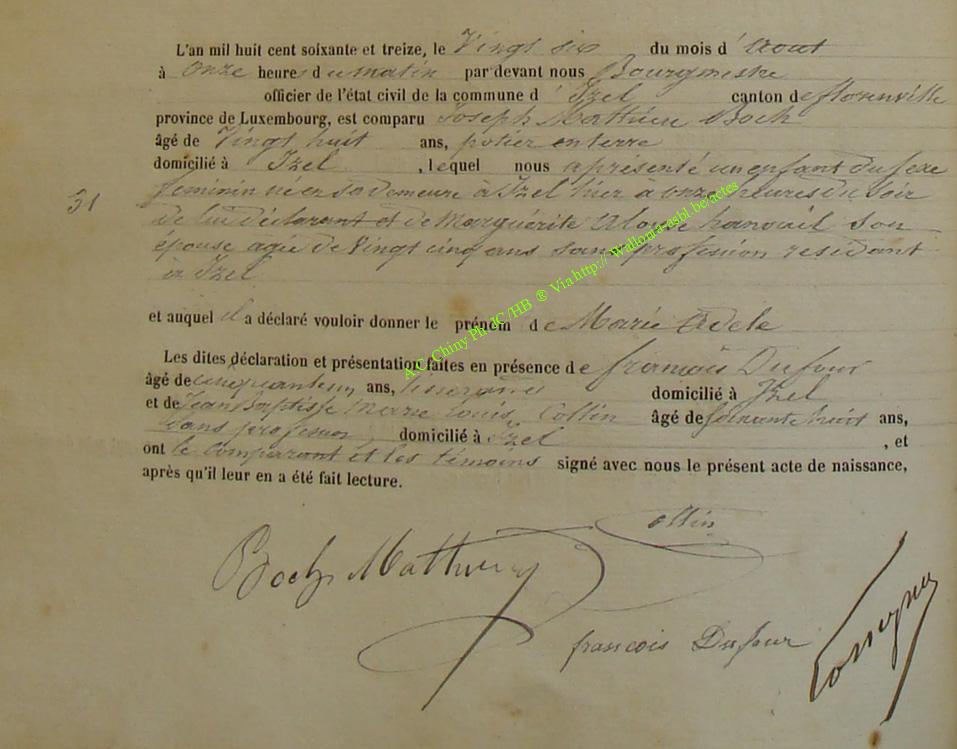 L'an mil huit cent soixante et treize, le Vingt six du mois d'Aout
à onze heures du matin par devant nous Bourgmestre
officier de l'état civil de la commune d'Izel canton de florenville
province de Luxembourg, est comparu Joseph Mathieu Boch
âgé de Vingt huit ans, potier en terre
domicilié à Izel, lequel nous a présenté un enfant du sexe
31 feminin né en sa demeure à Izel hier a onze heures du soir
de lui déclarant et de Marguérite son
épouse agée de Vingt cinq ans sans profession residant
à Izel
et auquel il a déclaré vouloir donner le prénom de Marie Adele
Les dites déclaration et présentation faites en présence de françois Dufour
âgé de cinquante un ans, domicilié à Izel
et de Jean Baptiste Marie Louis Collin âgé de soixante huit ans,
sans profession, domicilié à Izel, et
ont le comparant et les témoins signé avec nous le présent acte de naissance,
après qu'il leur en a été fait lecture.
Collin
Boch Mathieu
francois Dufour
A.C. Chiny Ph JC/HB ® Via http://wallonia-asbl.be/actes